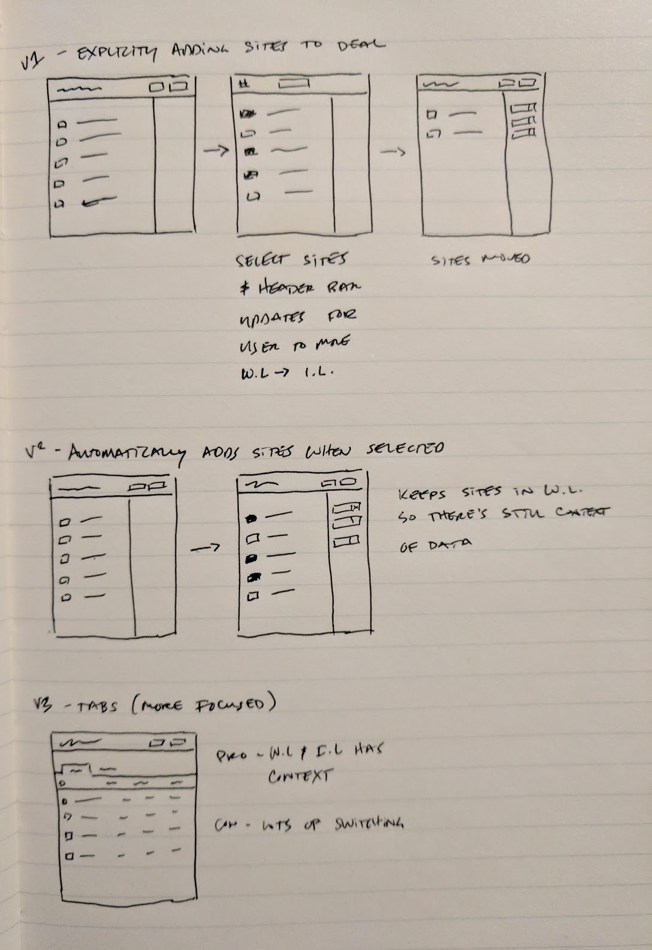 V1 - EXPLICITY ADDING SITES TO DEAL
SELECT SITES
& HEADER BAR
UPDATES FOR
USER TO MOVE
W.L → I.L.
SITES MOVED
V2 - AUTOMATICALLY ADDS SITES WHEN SELECTED
KEEPS SITES IN W.L.
SO THERE'S STILL CONTEXT
OF DATA
V3 - TABS (MORE FOCUSED)
PRO - W.L & I.L HAS
CONTEXT
CON - LOTS OF SWITCHING